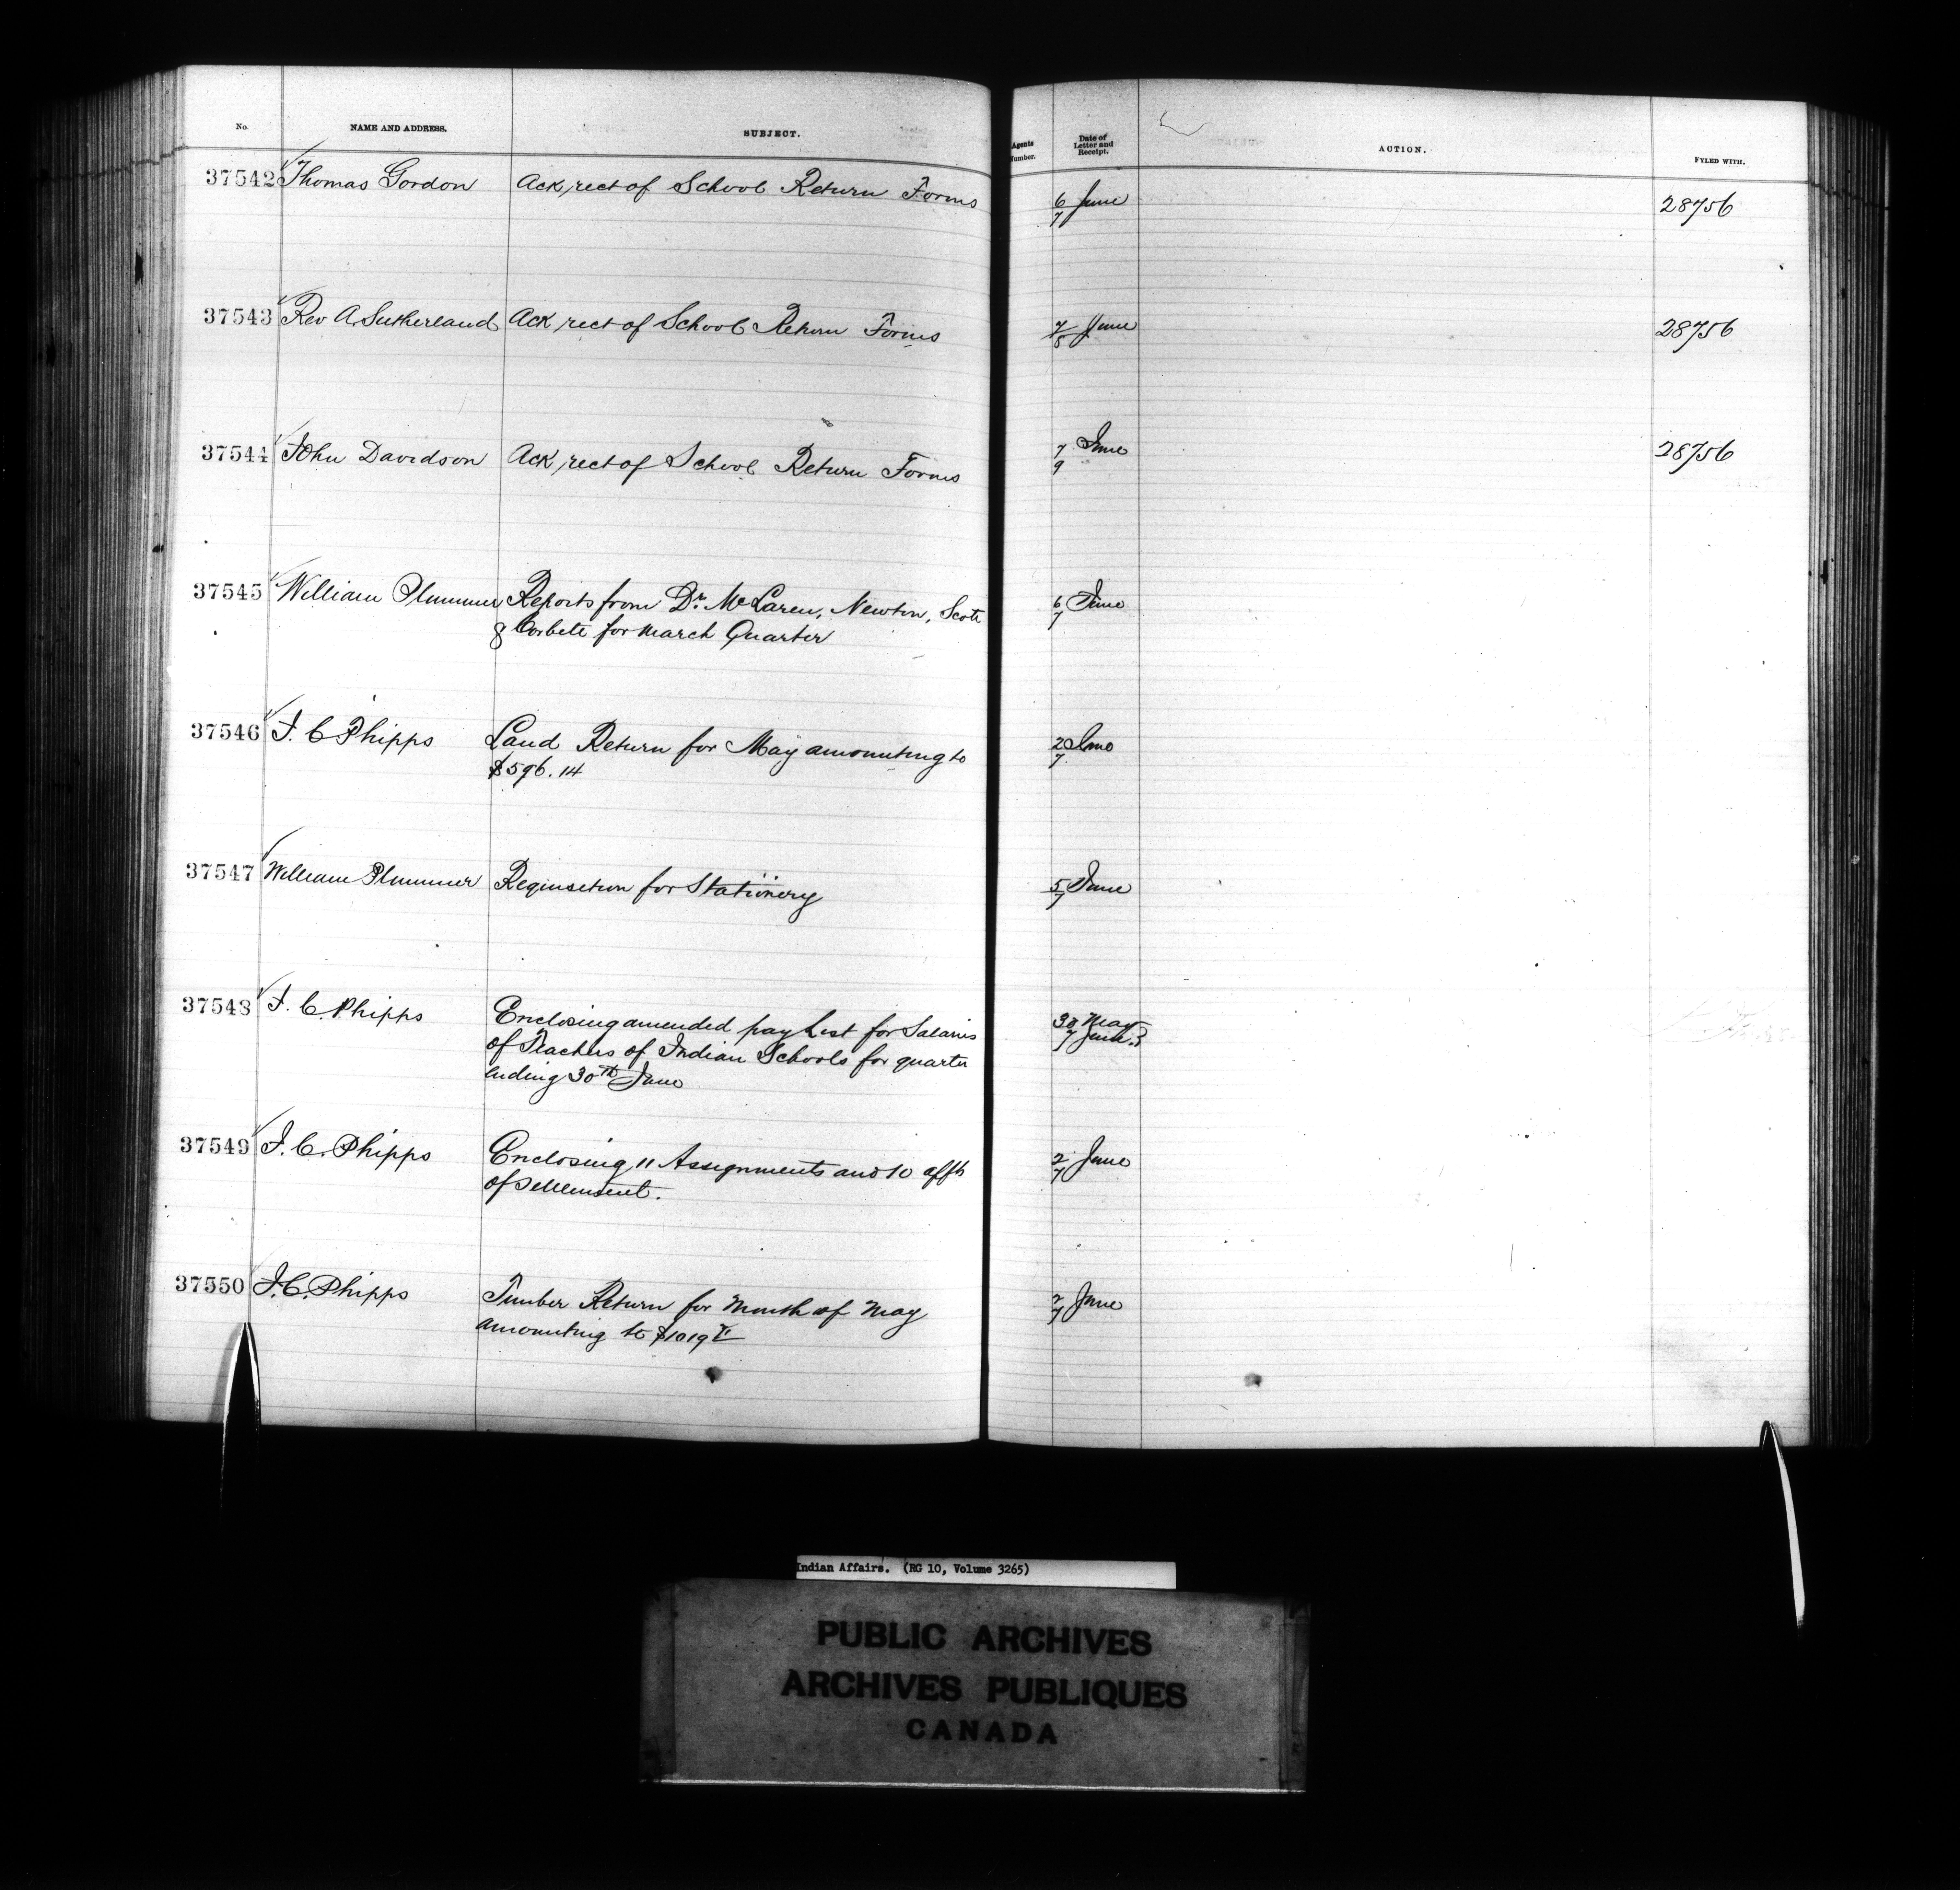 No. NAME AND ADDRESS. SUBJECT. Agents Number. Date of Letter and Receipt. ACTION. FYLED WITH.
37542 Thomas Gordon Ack rect of School Return Forms 6/7 June 28756
37543 Rev A. Sutherland Ack rect of School Return Forms 7/8 June 28756
37544 John Davidson Ack rect of School Return Forms 7/9 June 28756
37545 William Plummer Reports from Dr. McLaren, Newton, Scott 6/7 June
& Corbett for March Quarter
37546 J. C Phipps Land Return for May amounting to 2/7 June
$596.14
37547 William Plummer Requisition for Stationery 5/7 June
37548 J. C. Phipps Enclosing amended pay List for Salaries 30 May
of Teachers of Indian Schools for quarter 7 June
ending 30th June
37549 J. C. Phipps Enclosing 11 Assignments and 10 affts 2/7 June
of settlement.
37550 J. C. Phipps Timber Return for Month of May 2/7 June
amounting to $1019
Indian Affairs. (RG 10, Volume 3265)
PUBLIC ARCHIVES
ARCHIVES PUBLIQUES
CANADA